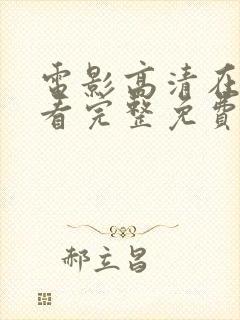 電影高清在
看完整免費
郝立昌